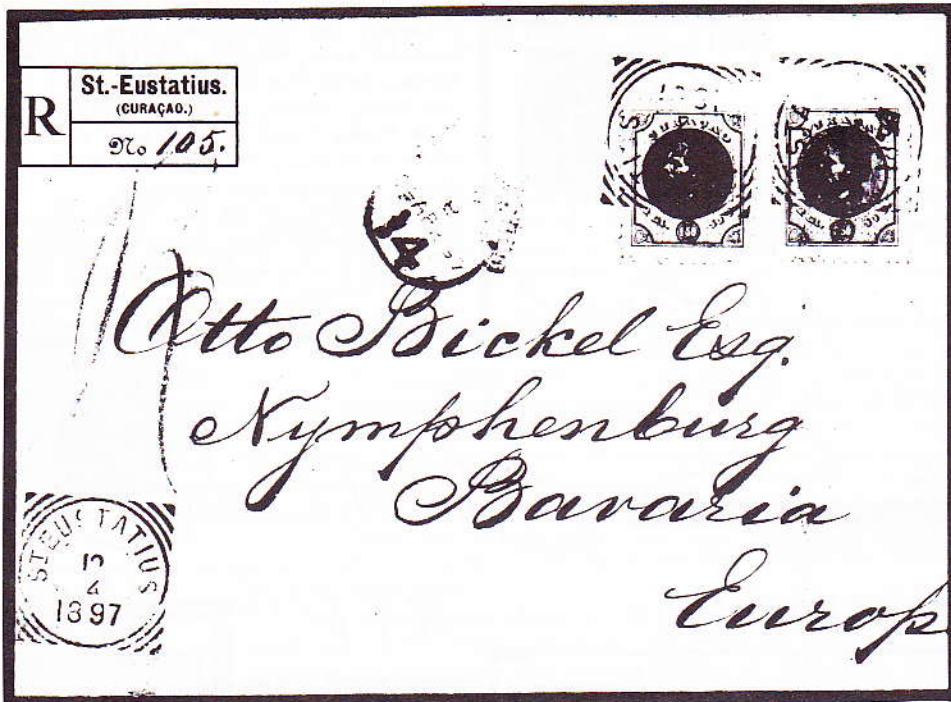 R
St.-Eustatius.
(CURAÇAO.)
No 105.
14
Otto Bickel Esq.
Nymphenburg
Bavaria
Europ
ST EUSTATIUS
12
4
1897